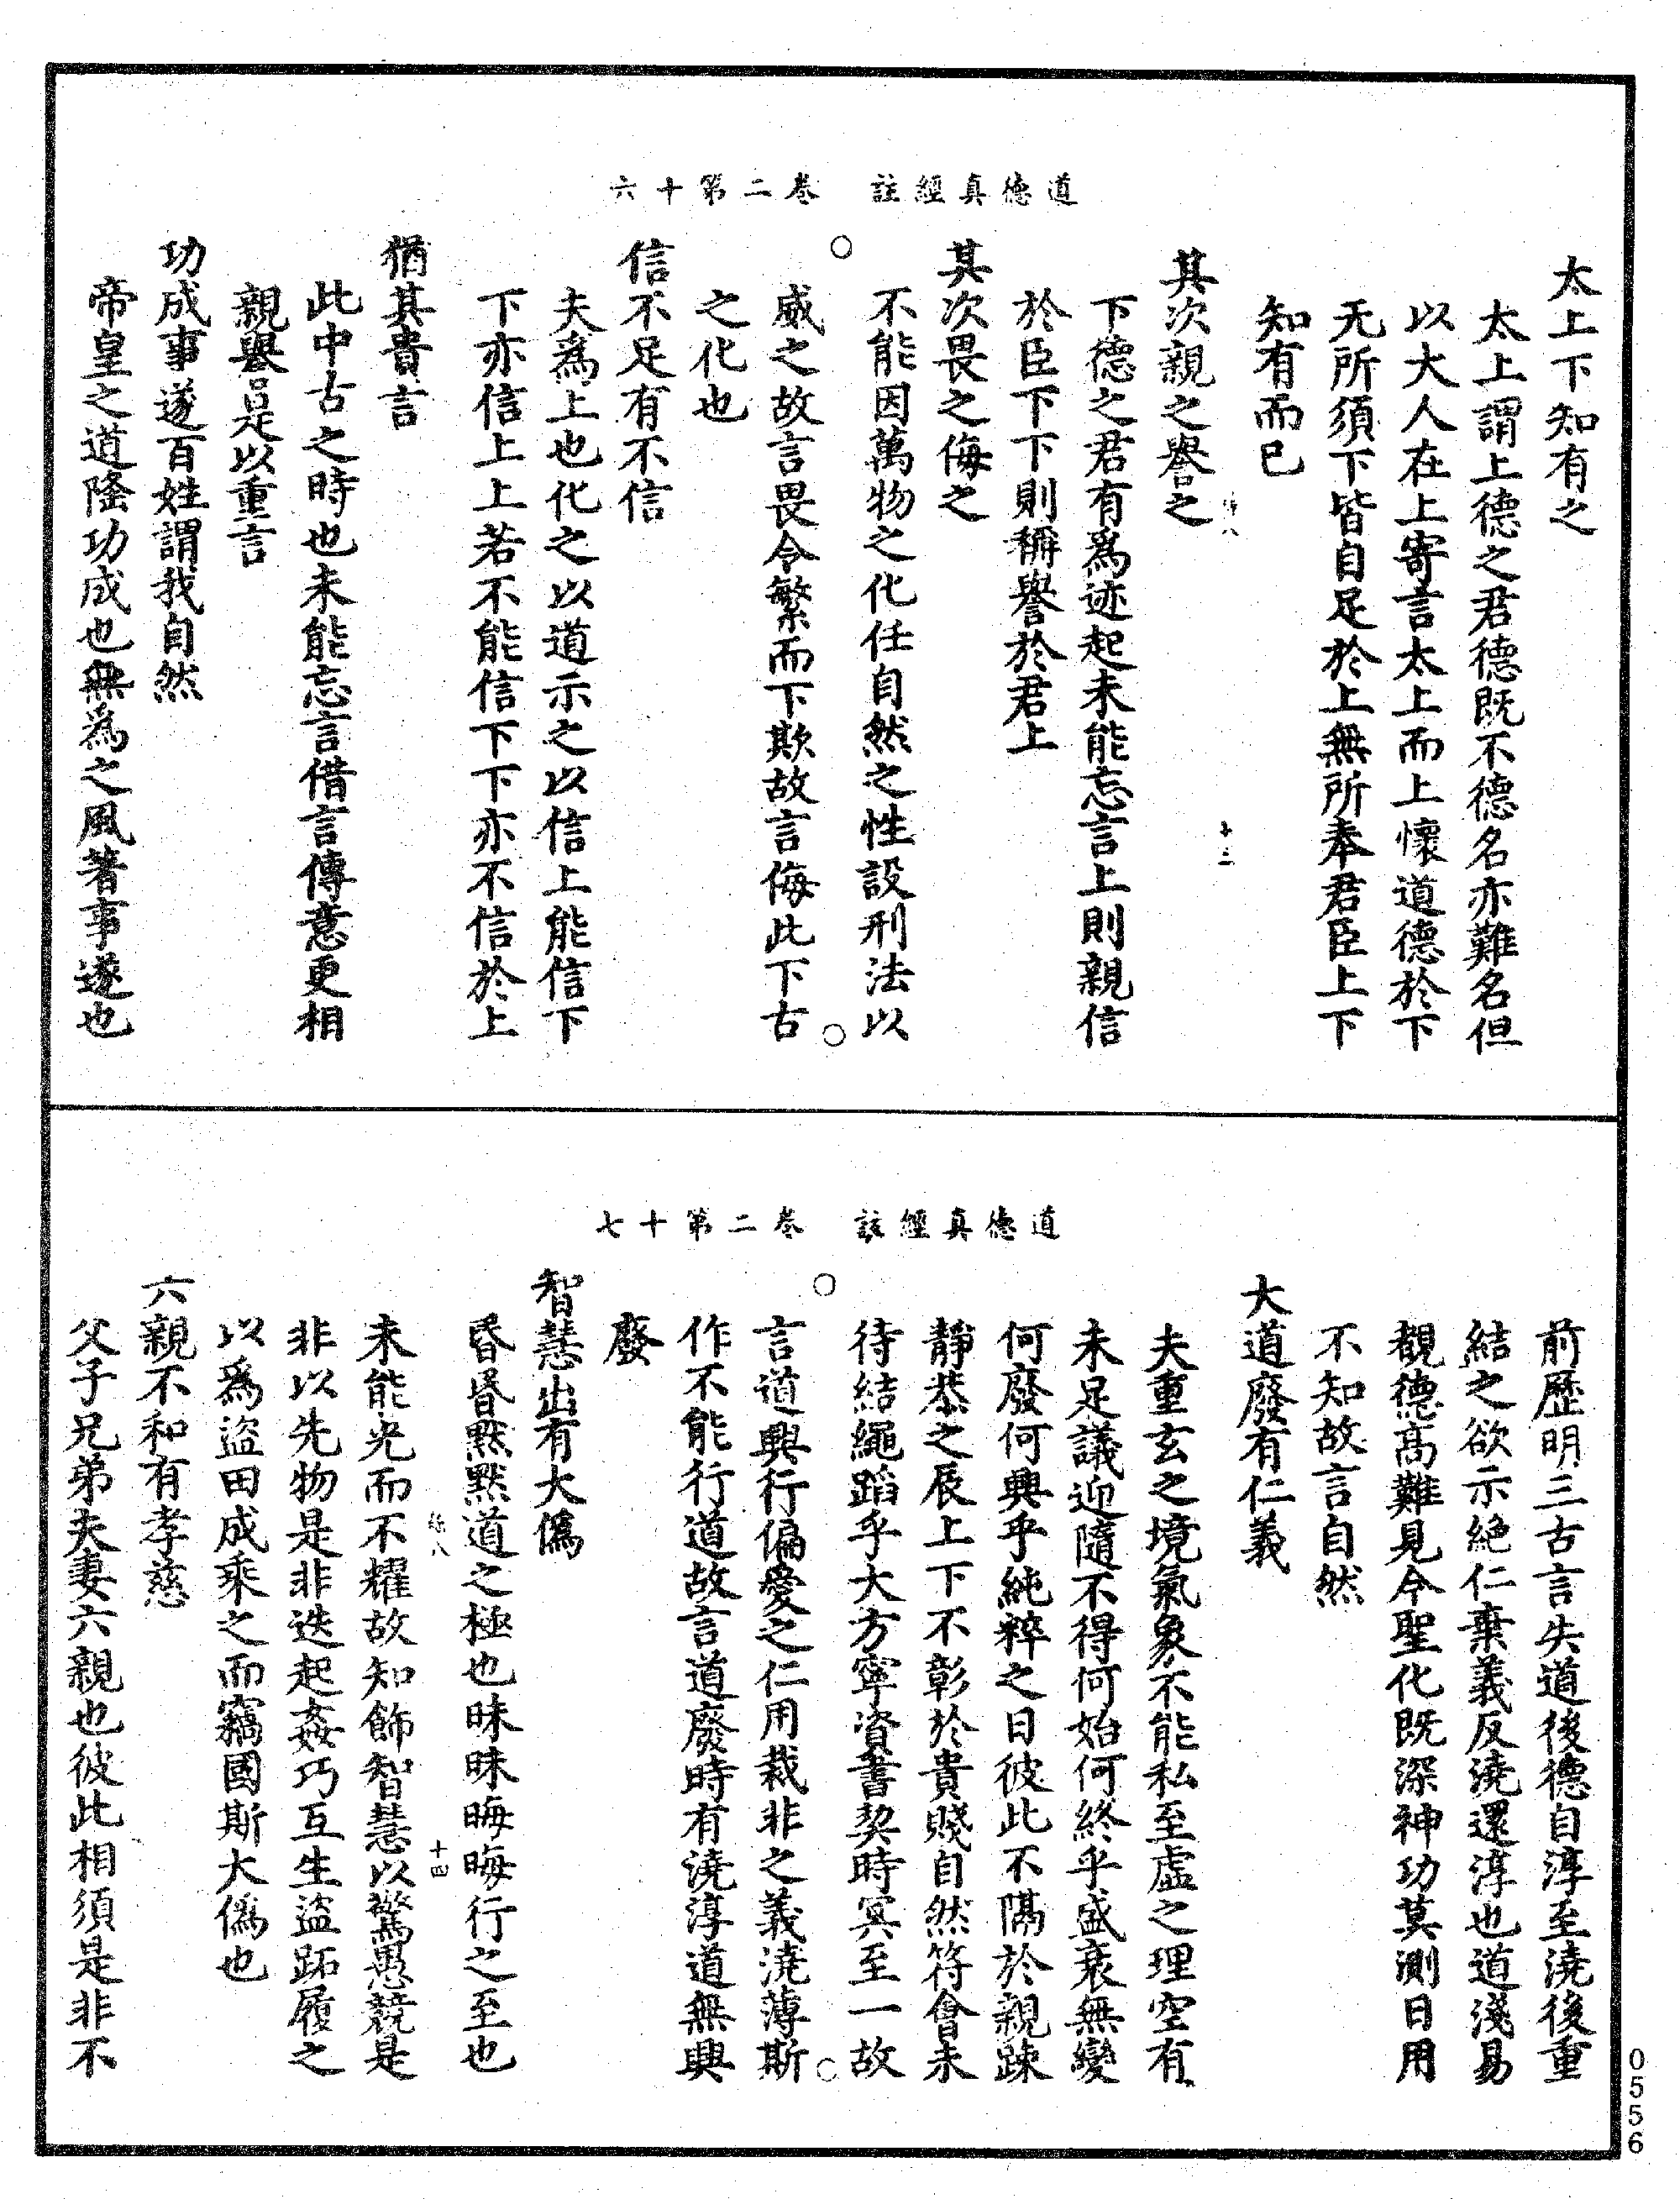 道德真經註　卷二第十六
太上下知有之
太上謂上德之君德既不德名亦難名但
以大人在上寄言太上而上懷道德於下
无所須下皆自足於上無所奉君臣上下
知有而已
其次親之譽之
十三
下德之君有爲迹起未能忘言上則親信
於臣下下則稱譽於君上
其次畏之侮之
不能因萬物之化任自然之性設刑法以
威之故言畏令繁而下欺故言侮此下古
之化也
信不足有不信
夫爲上也化之以道示之以信上能信下
下亦信上上若不能信下下亦不信於上
猶其貴言
此中古之時也未能忘言借言傳意更相
親譽是以重言
功成事遂百姓謂我自然
帝皇之道隆功成也無為之風著事遂也
道德真經註　卷二第十七
前歷明三古言失道後德自淳至澆後重
結之欲示絶仁棄義反澆還淳也道淺易
覩德高難見今聖化既深神功莫測日用
不知故言自然
大道廢有仁義
夫重玄之境氣象不能私至虛之理空有
未足議迎隨不得何始何終乎盛衰無變
何廢何興乎純粹之日彼此不隔於親踈
靜恭之辰上下不彰於貴賤自然符會未
待結繩蹈乎大方寧資書契時冥至一故
言道興行偏愛之仁用裁非之義澆薄斯
作不能行道故言道廢時有澆淳道無興
廢
智慧出有大僞
昏昏默默道之極也昧昧晦晦行之至也
十四
未能光而不耀故知飾智慧以驚愚競是
非以先物是非迭起姦巧互生盜跖履之
以爲盜田成乘之而竊國斯大僞也
六親不和有孝慈
父子兄弟夫妻六親也彼此相須是非不
0556